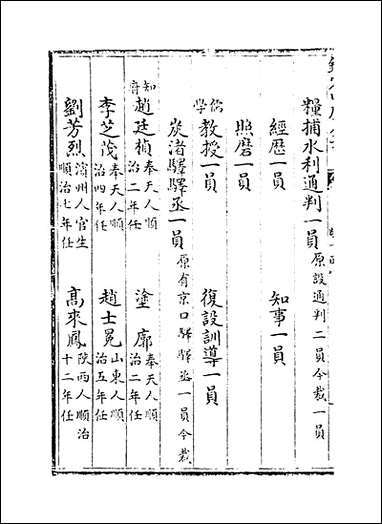 糧捕水利通判一員原設通判二員今裁一員
經歷一員 知事一員
照磨一員
儒學教授一員 復設訓導一員
炭渚驛驛丞一員原有京口驛驛丞一員今裁
知府趙廷楨奉天人順治二年任 塗廓奉天人順治二年任
李芝茂奉天人順治四年任 趙士冕山東人順治五年任
劉芳烈滄州人官生順治七年任 高來鳳陝西人順治十二年任